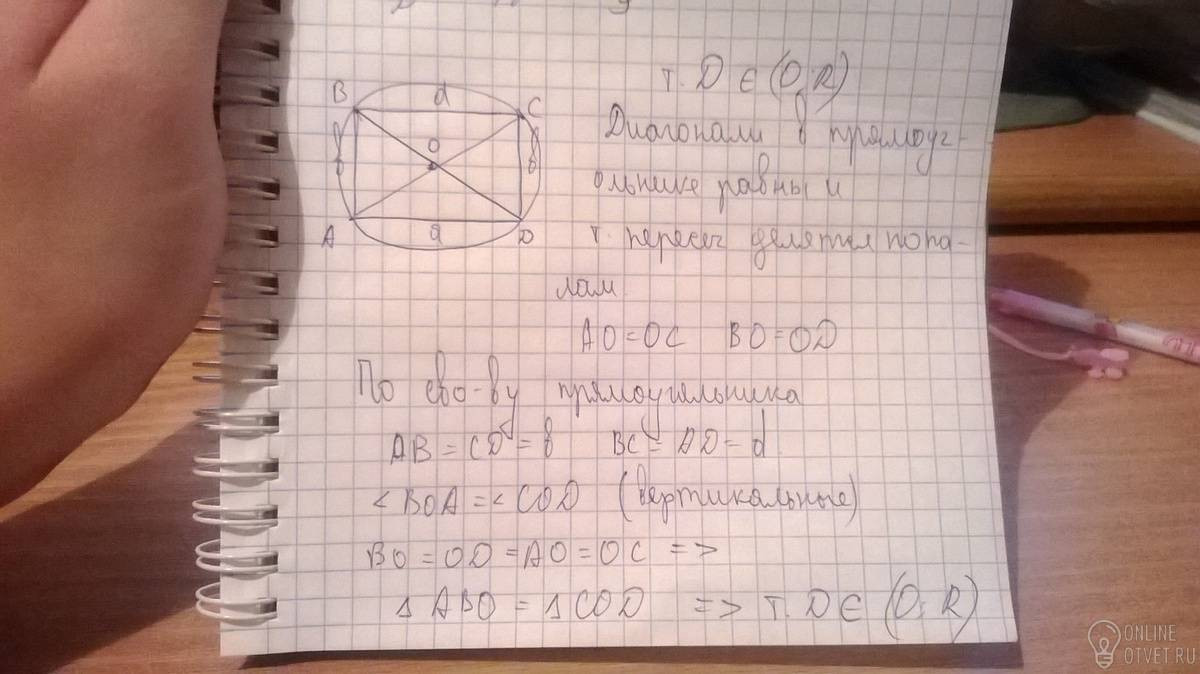 т. D ∈ (O, R)
B d C
b O b
A a D
Диагонали в прямоуг-
ольнике равны и
т. пересеч делятся попо-
лам.
AO = OC BO = OD
По сво-ву прямоугольника
AB = CD = b BC = AD = d
< BOA = < COD (вертикальные)
BO = OD = AO = OC =>
Δ ABO = Δ COD => т. D ∈ (O; R)
ONLINE
OTVET.RU